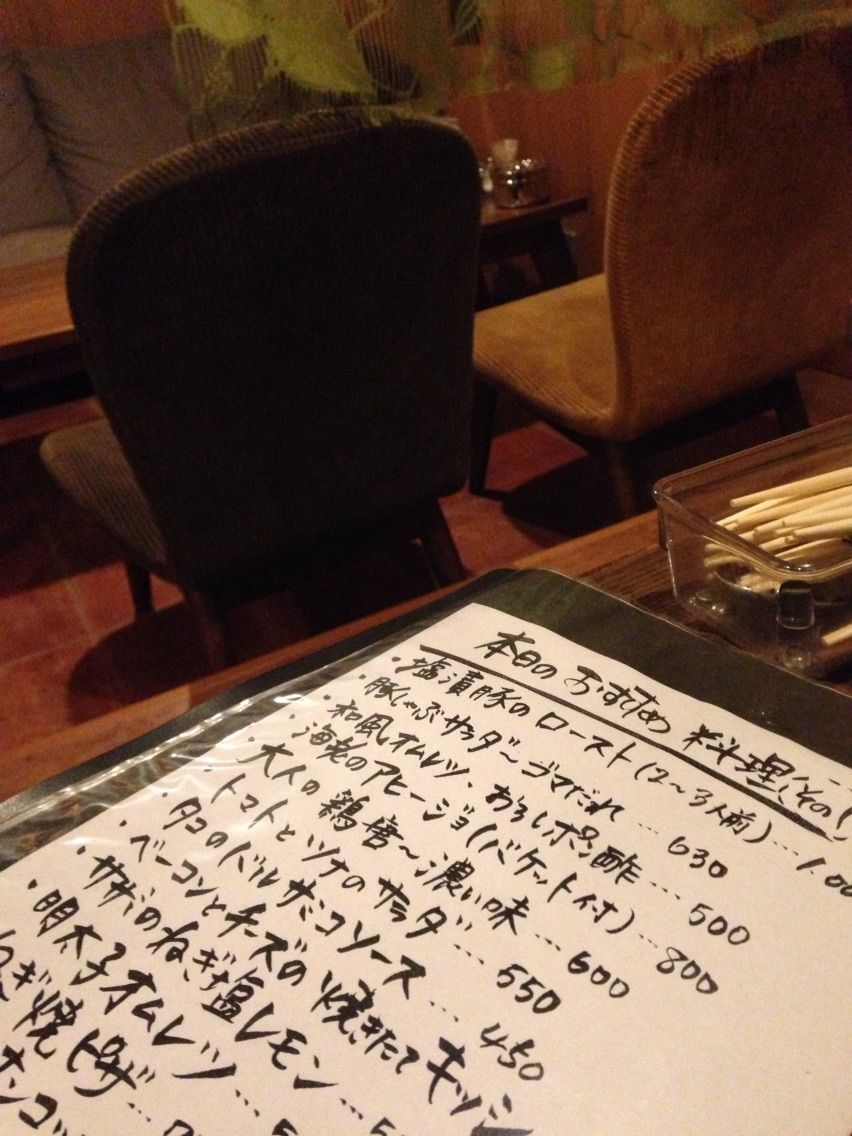 本日のおすすめ料理(その
・塩漬豚のロースト(2〜3人前)…1.00
・豚しゃぶサラダ〜ゴマだれ…630
・和風オムレツ、おろしポン酢…500
・海老のアヒージョ(バケット付)…800
・大人の鶏唐〜濃い味…600
・トマトとツナのサラダ…550
・タコのバルサミコソース…450
・ベーコンとチーズの焼きたてキッシ
・サザのねぎ塩レモン…5
・明太子オムレツ…5
ねぎ焼ピザ…
ンコッ